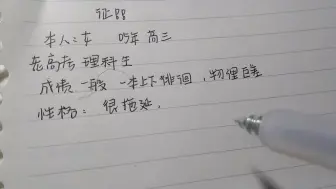 本人:女 05年 高三
老高考 理科生
成绩一般 一本上下徘徊,物理巨差
性格:很拖延.